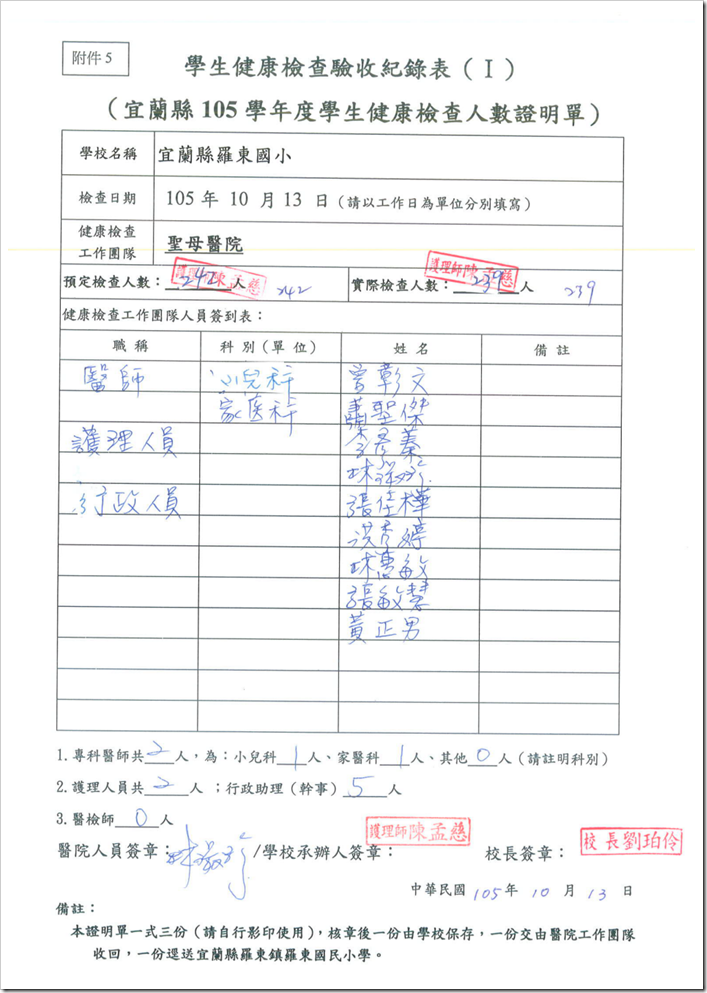 附件 5
學生健康檢查驗收紀錄表（I）
（宜蘭縣 105 學年度學生健康檢查人數證明單）
學校名稱 宜蘭縣羅東國小
檢查日期 105 年 10 月 13 日（請以工作日為單位分別填寫）
健康檢查工作團隊 聖母醫院
預定檢查人數：242人 242 護理師陳孟慈 實際檢查人數：239人 239 護理師陳孟慈
健康檢查工作團隊人員簽到表：
職稱 科別（單位） 姓名 備註
醫師 小兒科 曾彰文
家医科 蕭聖傑
護理人員
行政人員 張佳樺
洪秀婷
林惠敏
張敏慧
黃正男
1.專科醫師共2人，為：小兒科1人、家醫科1人、其他0人（請註明科別）
2.護理人員共2人 ；行政助理（幹事）5人
3.醫檢師0人
醫院人員簽章： /學校承辦人簽章：護理師陳孟慈 校長簽章：校長劉珀伶
中華民國 105年 10 月 13 日
備註：
本證明單一式三份（請自行影印使用），核章後一份由學校保存，一份交由醫院工作團隊
收回，一份逕送宜蘭縣羅東鎮羅東國民小學。